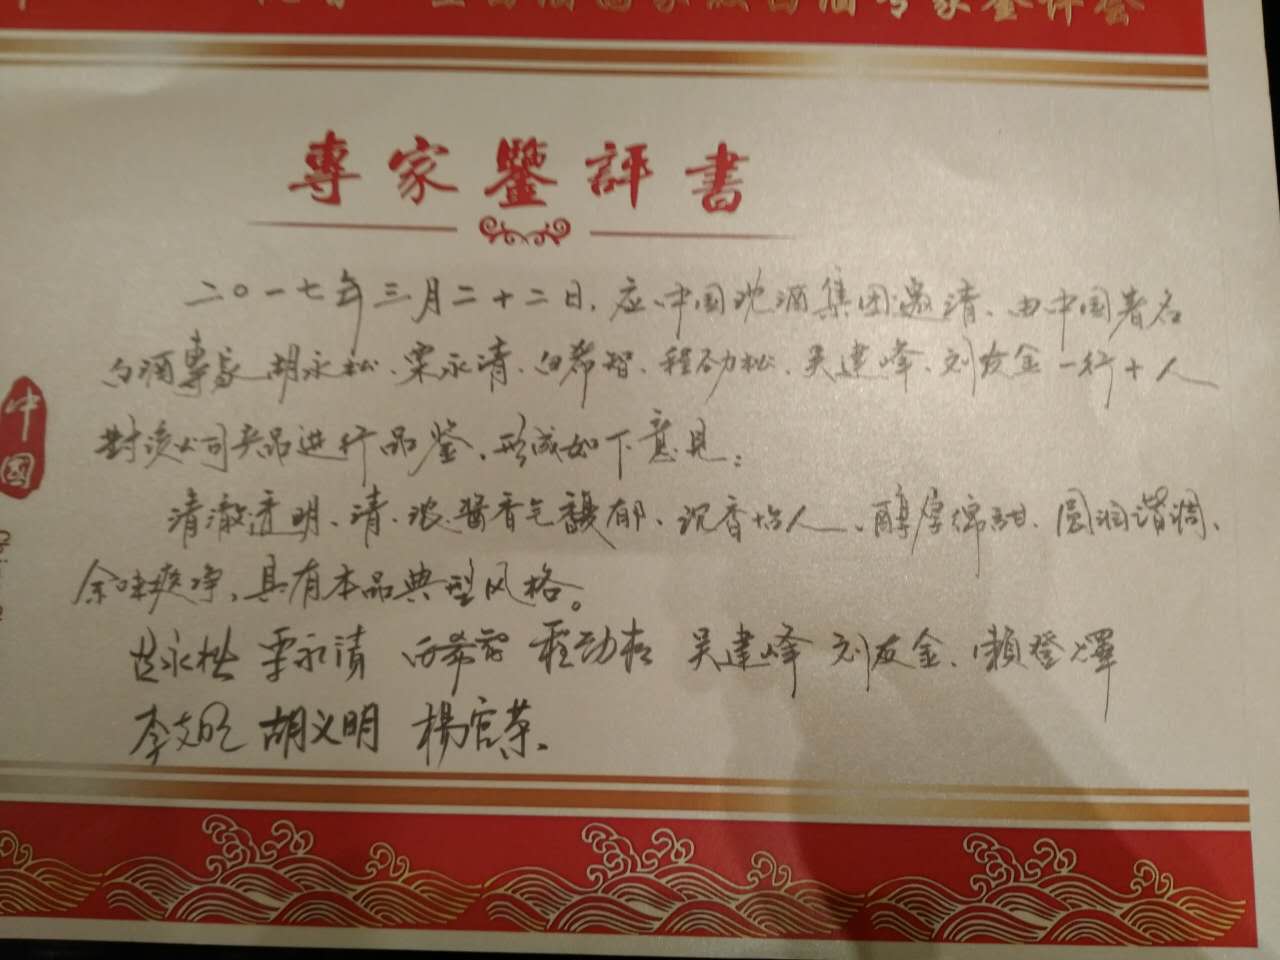 國家級白酒專家鑒評會
專家鑒評書
二〇一七年三月二十二日，应中国沈酒集团邀请、由中国著名
白酒專家胡永松、栗永清、白希智、程劲松、吴建峰、刘友金一行十人
對该公司产品进行品鉴，形成如下意见：
清澈透明、清、浓、醬香气馥郁、沉香怡人、醇厚绵甜、圆润谐调、
余味爽净，具有本品典型风格。
栗永清 白希智 程劲松 吴建峰 刘友金、賴登燡
胡义明 楊官荣
中國